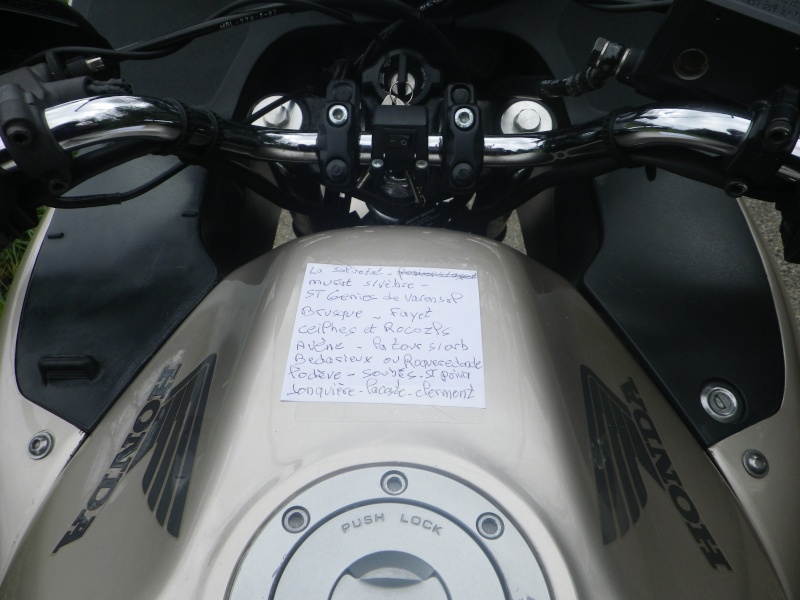 La salvetat -
murat s/vèbre -
ST Genies de Varensal
Brusque - Fayet
Ceilhes et Rocozels
Avène - la tour s/orb
Bedarieux ou Roqueredonde
lodève - soubès - ST privat
Jonquière - lacoste - clermont
HONDA
HONDA
PUSH LOCK